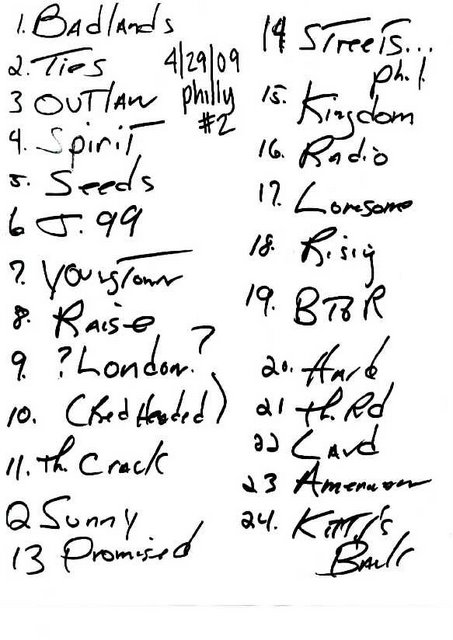 1. Badlands
2. Ties
3 OUTlaw
4. Spirit
5. Seeds
6 J. 99
7. Youngstown
8. Raise
9. ? London. ?
10. (Red Headed)
11. th. Crack
12 Sunny
13 Promised
4/29/09
philly
#2
14 Streets...
Phil
15. Kingdom
16. Radio
17. Lonesome
18. Rising
19. BTOR
20. Hard
21 th. Rd
22 Land
23 American
24. Kitty's
Back